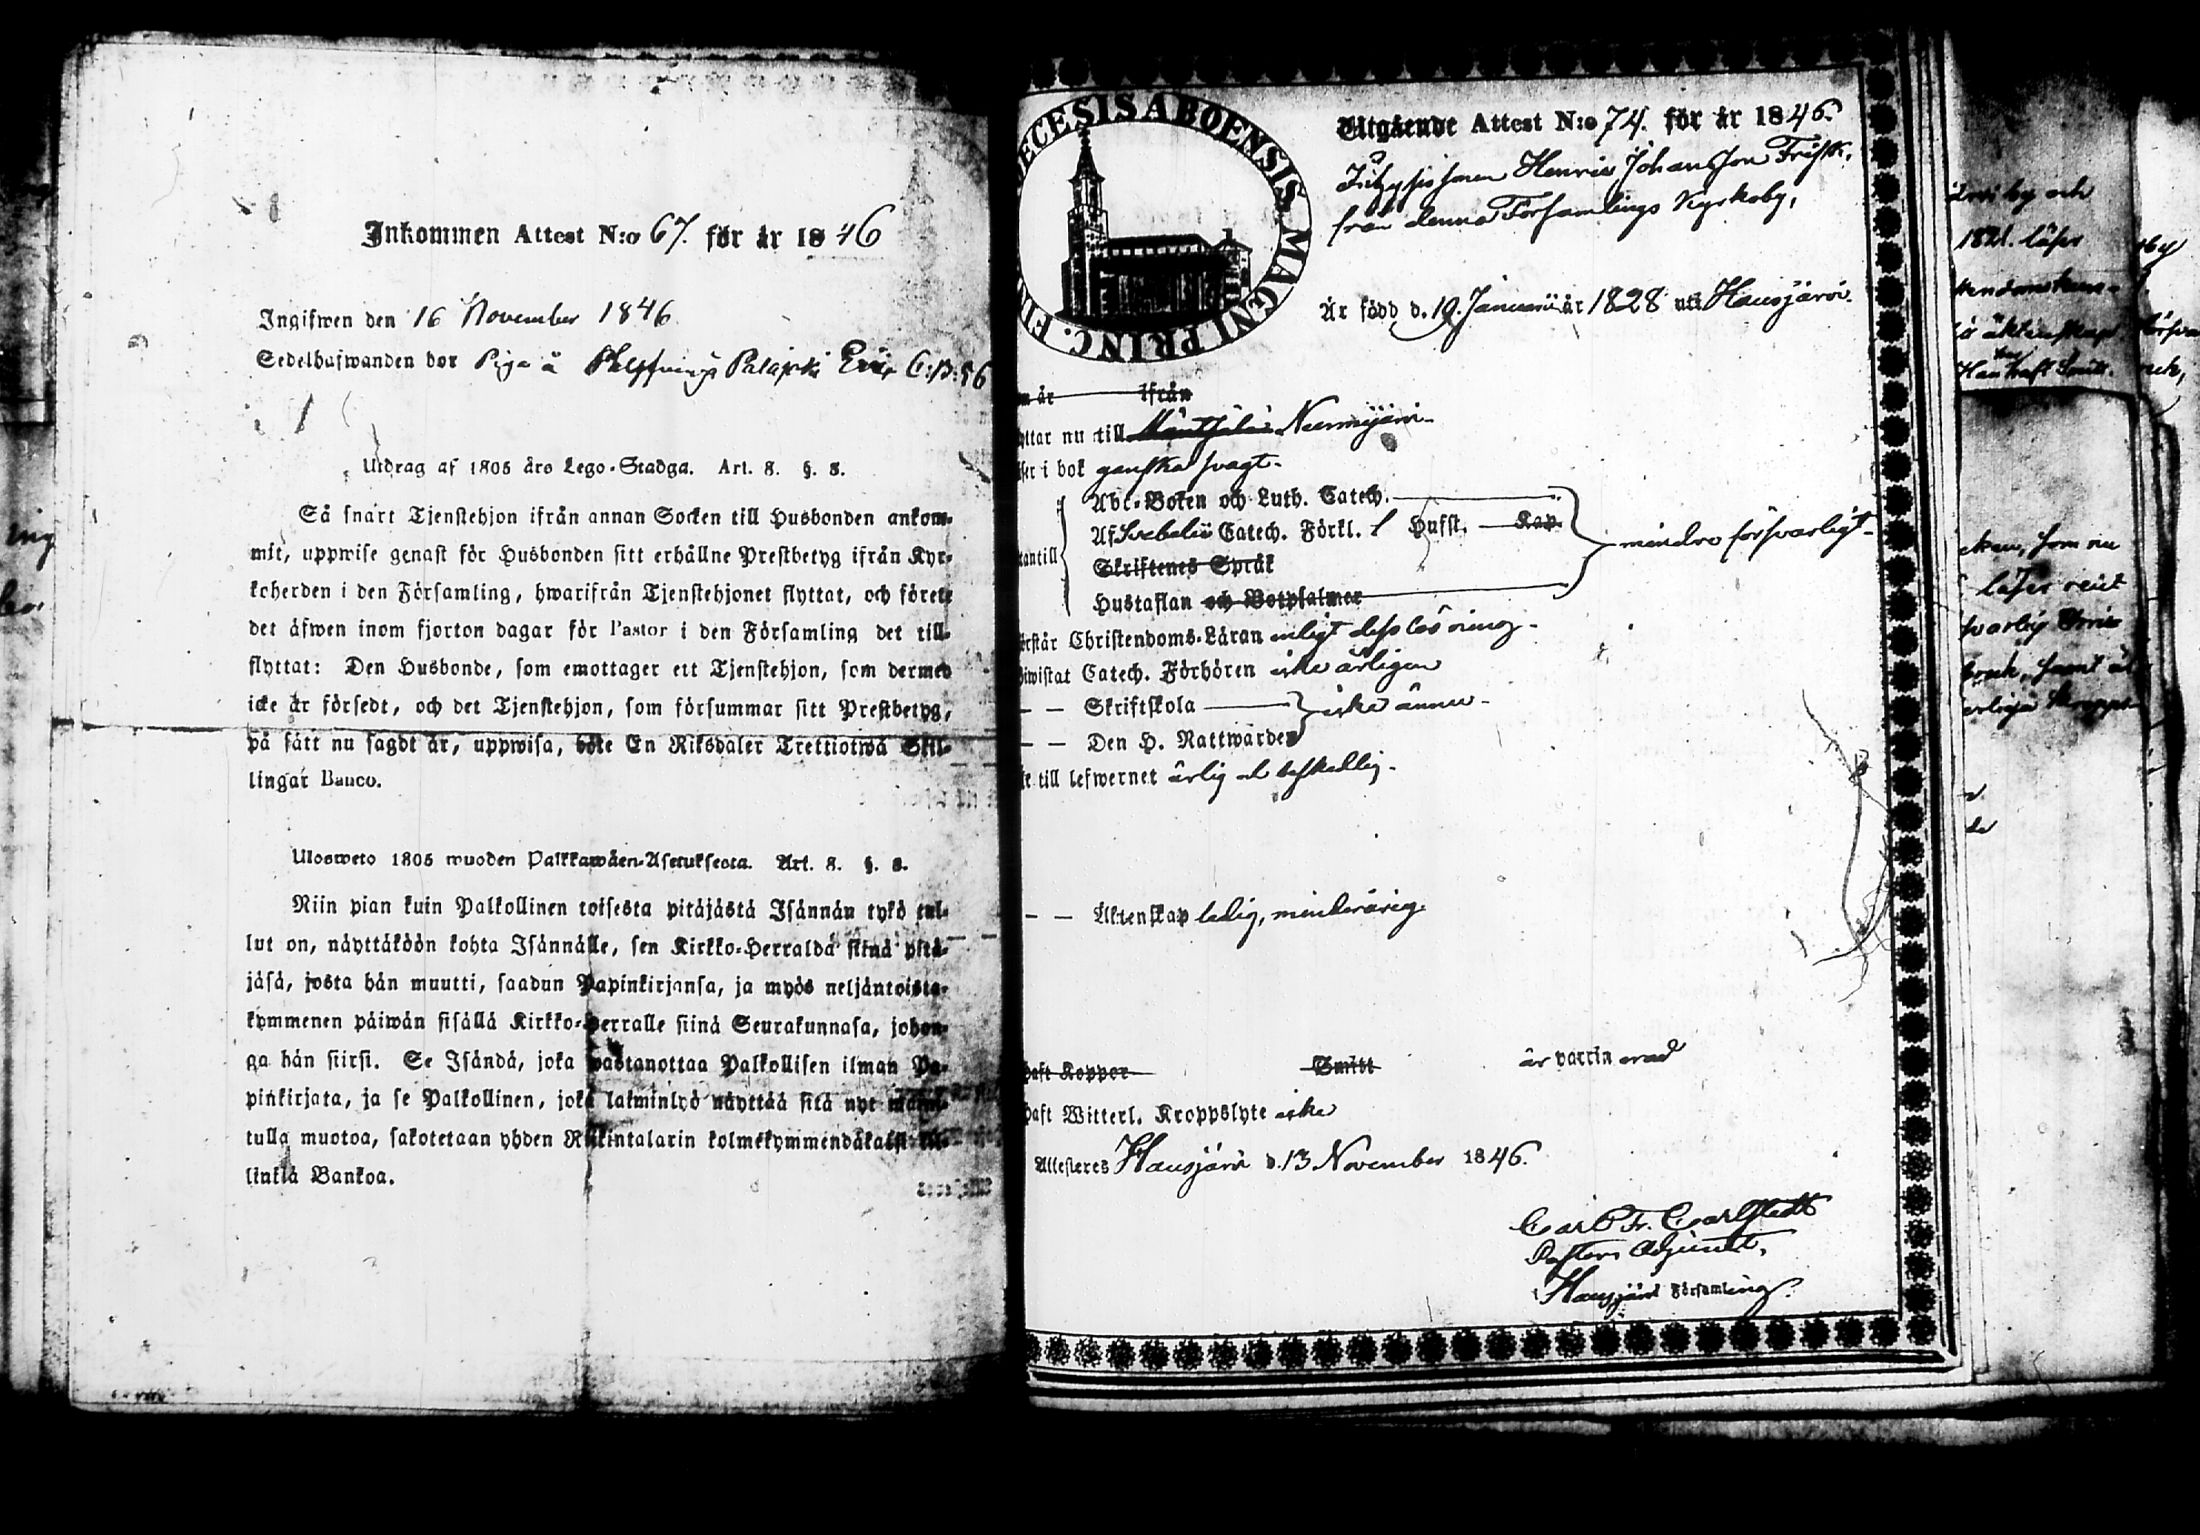 Inkommen Attest N:o 67. för år 1846
Ingifwen den 16 November 1846
Sedelhafwanden bor Piga å Palajoki C:B:56
Utdrag af 1805 års Lego-Stadga. Art. 8. §. 8.
Så snart Tjenstehjon ifrån annan Socken till Husbonden ankom-
mit, uppwise genast för Husbonden sitt erhållne Prestbetyg ifrån Kyr-
koherden i den Församling, hwarifrån Tjenstehjonet flyttat, och förete
det äfwen inom fjorton dagar för Pastor i den Församling det till-
flyttat: Den Husbonde, som emottager ett Tjenstehjon, som dermed
icke är försedt, och det Tjenstehjon, som försummar sitt Prestbetyg,
på sätt nu sagdt är, uppwisa, böte En Riksdaler Trettiotwå Skil-
lingar Banco.
Ulosweto 1805 wuoden Palkkawäen-Asetuksesta. Art. 8. §. 8.
Niin pian kuin Palkollinen toisesta pitäjästä Isännän tykö tul-
lut on, näyttäköön kohta Isännälle, sen Kirkko-Herralda siinä pitä-
jäsä, josta hän muutti, saadun Papinkirjansa, ja myös neljäntoista-
kymmenen päiwän sisällä Kirkko-Herralle siinä Seurakunnasa, johon-
ga hän siirsi. Se Isändä, joka wastanottaa Palkollisen ilman Pa-
pinkirjata, ja se Palkollinen, joka laiminlyö näyttää sitä nyt maini-
tulla muotoa, sakotetaan yhden Riikintalarin kolmekymmendäkaksi kil-
linkiä Bankoa.
ECESIS ABOENSIS MAGNI PRINC. FIN
Utgående Attest N:o 74. för år 1846.
Henric Johansson Frisk,
från denna Församlings Kyrkoby,
Är född d. 19. Januarii år 1828 uti Hausjärvi.
år ifrån
yttar nu till Mäntsälä Nurmijärvi
i bok ganska svagt.
Abc-Boken och Luth. Catech.
Af Svebelii Catech. Förkl. Hufst. Kap.
mindre försvarligt
antill
Skriftenes Språk
Hustaflan och Botpsalmer
rstår Christendoms-Läran enligt dess läsning
iwistat Catech. Förhören icke årligen
— — Skriftskola
icke ännu
— — Den H. Nattwarden
till lefwernet ärlig och beskedlig.
— — Äktenskap ledig, minderårig.
haft Koppor Smitt är vaccinerad
haft Witterl. Kroppslyte icke
Attesteres Hausjärvi d. 13 November 1846.
Carl Fr. Carlstedt
Pastors Adjunct,
Hausjärvi Församling.
by och
1821. läser
äktenskap
som nu
läser rent